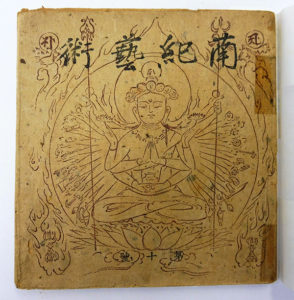 南紀藝術
第十號